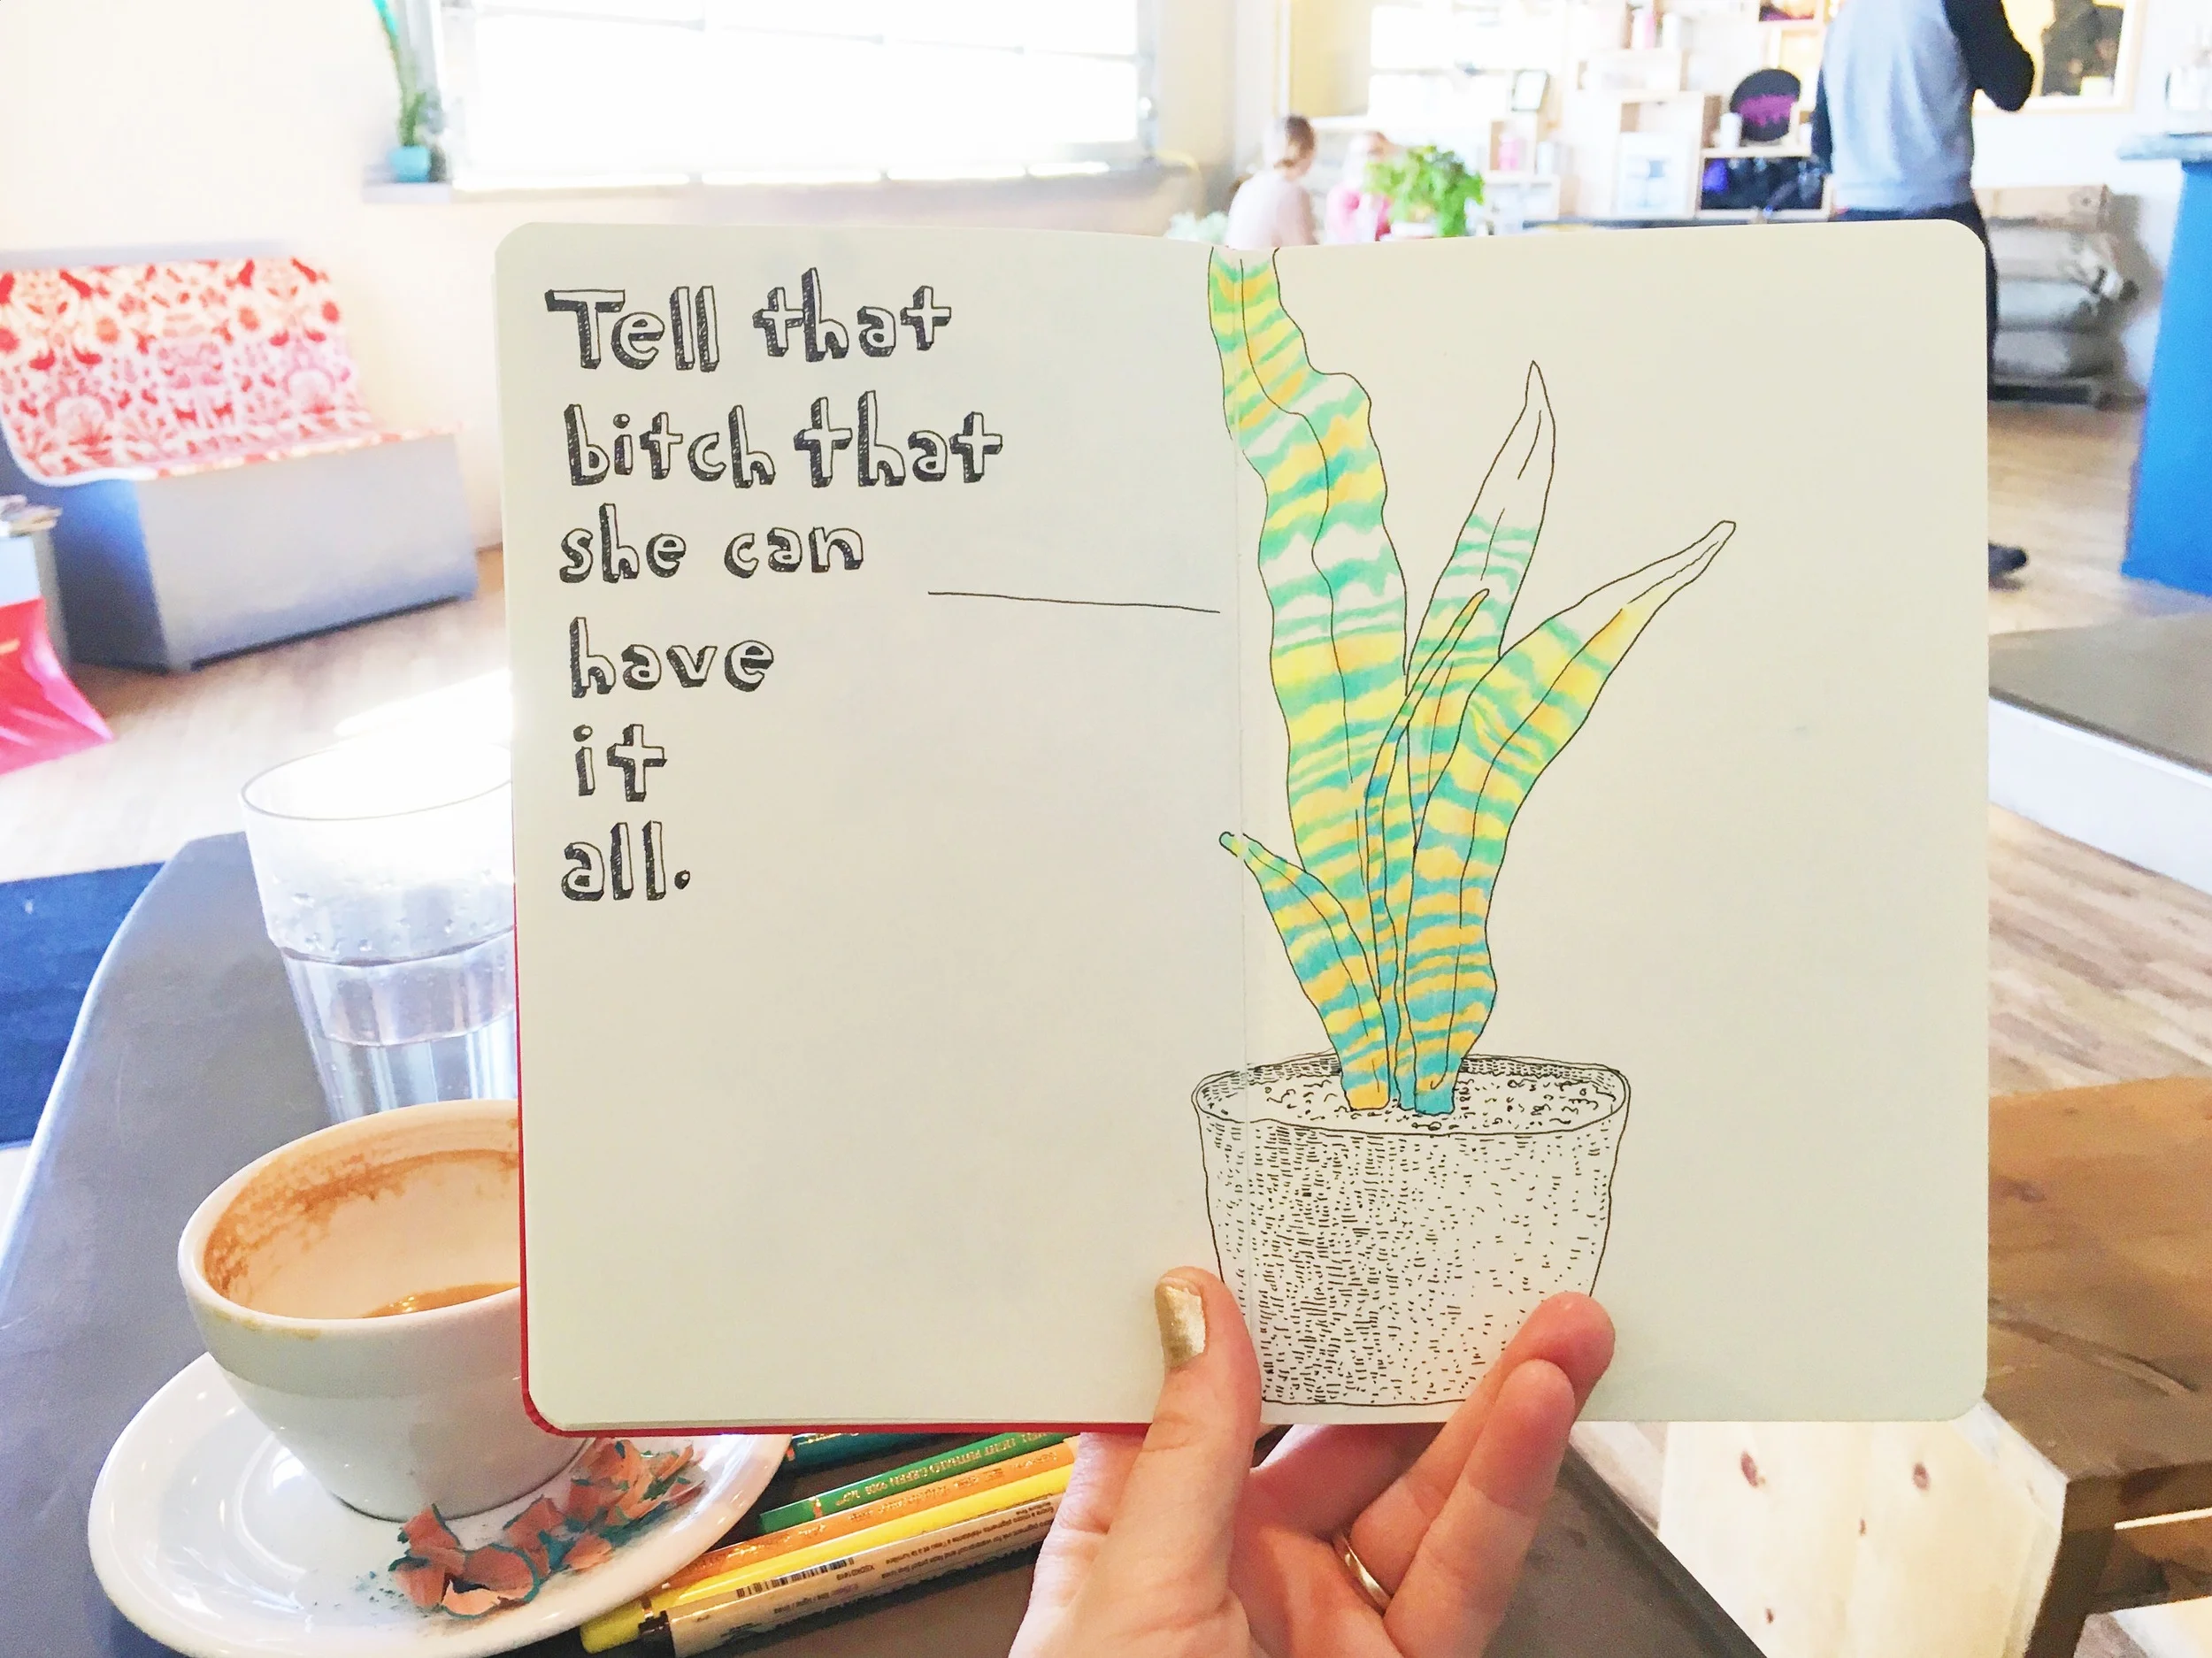 Tell that
bitch that
she can
have
it
all.